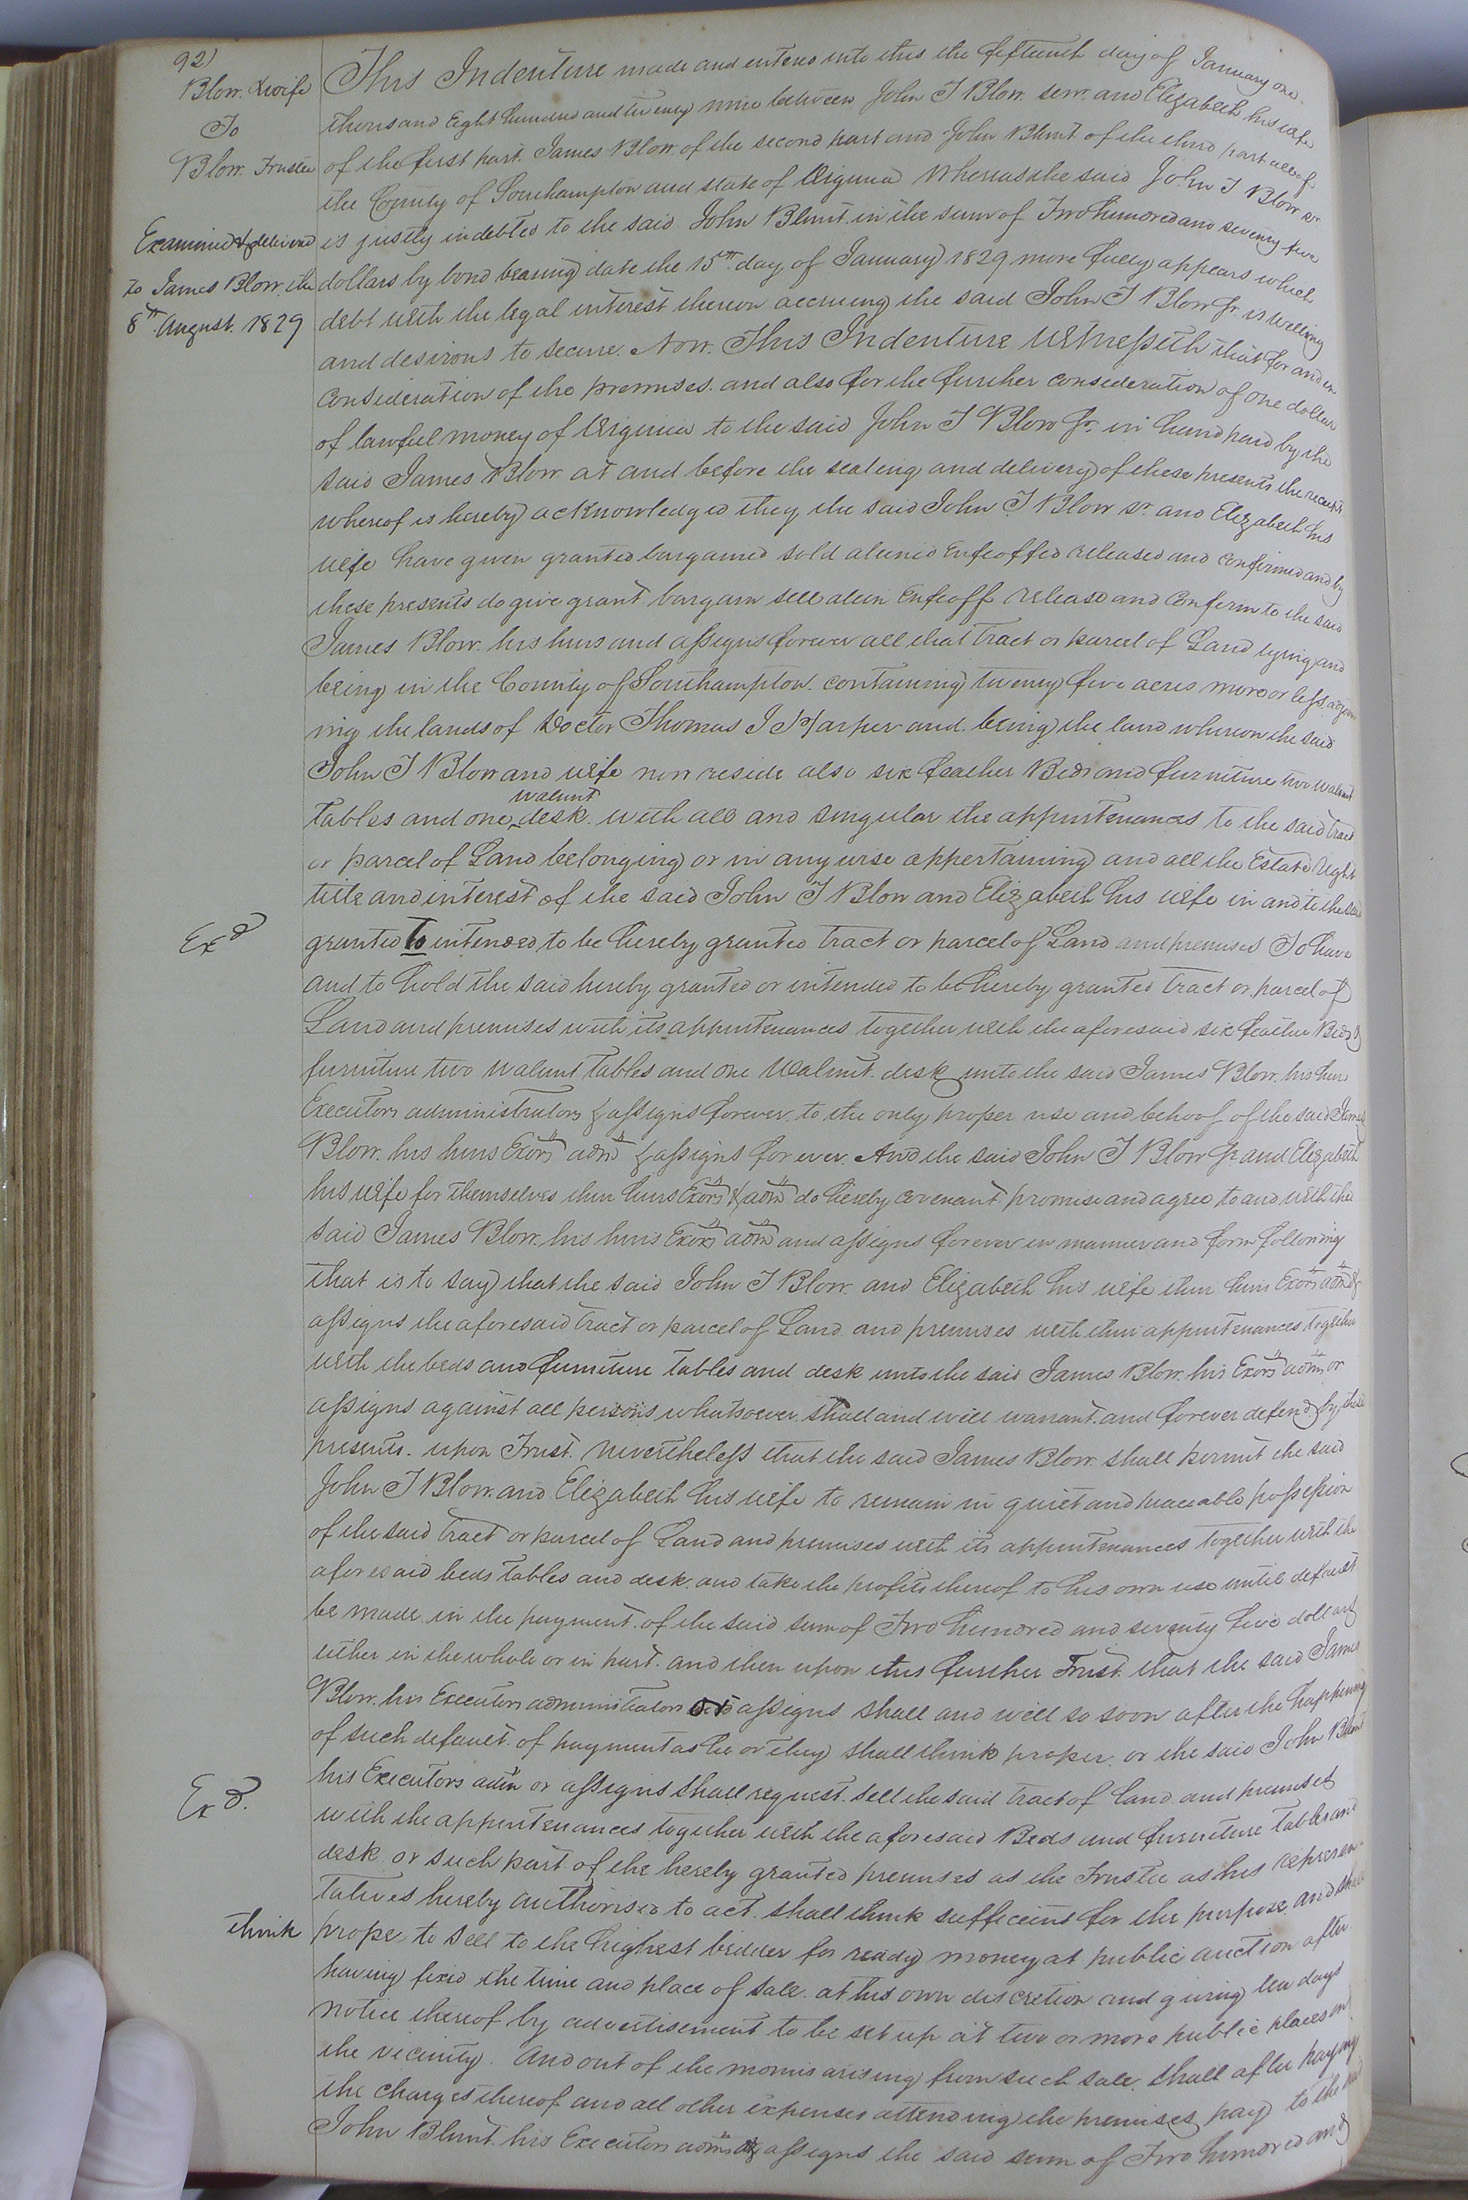 92)
Blow. & wife
To
Blow. Trustee
Examined & delivered
to James Blow. the
8th. August. 1829
This Indenture made and entered into this the fifteenth day of January one
thousand Eight hundred and twenty nine between John T Blow. senr. and Elizabeth his wife
of the first part. James Blow of the second part and John Blunt of the third part all of
the County of Southampton and state of Virginia Whereas the said John T Blow sr
is justly indebted to the said John Blunt. in the sum of Two hundred and seventy five
dollars by bond bearing date the 15th. day of January 1829 more fully appears which
debt with the legal interest thereon accruing the said John T Blow Jr. is willing
and desirous to secure. Now. This Indenture Witnesseth that for and in
consideration of the premises. and also for the further consideration of one dollar
of lawful money of Virginia to the said John T Blow Jr. in hand paid by the
said James Blow at and before the sealing and delivery of these presents the receipt
whereof is hereby acknowledged they the said John T Blow sr. and Elizabeth his
wife have given granted bargained sold aliened Enfeoffed released and confirmed and by
these presents do give grant bargain sell alien Enfeoff release and Confirm to the said
James Blow. his heirs and assigns forever all that Tract or parcel of Land lying and
being in the County of Southampton. containing twenty five acres more or less. adjoin
ing the lands of Doctor Thomas J Harper and being the land whereon the said
John T Blow and wife now reside also six feather Beds and furniture two walnut
walnut
tables and one desk. with all and singular the appurtenances to the said tract
or parcel of Land belonging or in any wise appertaining and all the Estate Right
title and interest of the said John T Blow and Elizabeth his wife in and to the said
Exd
granted To intended to be hereby granted Tract or parcel of Land and premises To have
and to hold the said hereby granted or intended to be hereby granted Tract or parcel of
Land and premises with its appurtenances together with the aforesaid six feather Beds &
furniture two walnut tables and one Walnut. desk unto the said James Blow. his heirs
Executors administrators & assigns forever. to the only proper use and behoof of the said James
Blow. his heirs Exors adm & assigns for ever. And the said John T Blow Jr and Elizabeth
his wife for themselves their heirs Exors & adm do hereby covenant promise and agree to and with the
said James Blow. his heirs Exors adm and assigns forever in manner and form following
that is to say that the said John T Blow. and Elizabeth his wife their heirs Exors adm &
assigns the aforesaid Tract or parcel of Land. and premises with their appurtenances together
with the beds and furniture tables and desk unto the said James Blow. his Exors adm or
assigns against all persons whatsoever shall and will warrant. and forever defend by these
presents. upon Trust. Nevertheless that the said James Blow. shall permit the said
John T Blow. and Elizabeth his wife to remain in quiet and peaceable possession
of the said Tract or parcel of Land and premises with its appurtenances together with the
aforesaid beds tables and desk. and take the profits thereof to his own use until default
be made in the payment. of the said sum of Two hundred and seventy five dollars
either in the whole or in part. and then upon this further Trust. that the said James
Blow. his Executors administrators or assigns shall and will so soon after the happening
of such default. of payment as he or they shall think proper. or the said John Blunt
his Executors adm or assigns shall request. sell the said tract of Land. and premises
Exd.
with the appurtenances together with the aforesaid Beds and furniture Tables and
desk or such part of the hereby granted premises as the Trustee as his represen-
tatives hereby authorised to act. shall think sufficient for the purpose. and shall
think
proper to sell to the highest bidder for ready money at public auction after
having fixed the time and place of sale. at his own discretion and giving ten days
notice thereof by advertisement to be set up at two or more public places in
the vicinity. And out of the monies arising from such sale. shall after paying
the charges thereof and all other expenses attending the premises pay to the said
John Blunt. his Executors adms & assigns the said sum of Two hundred and